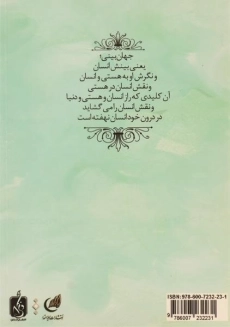 جهان بینی؛
یعنی بینش انسان
و نگرش او به هستی و انسان
و نقش انسان در هستی
آن کلیدی که راز انسان و هستی و دنیا
و نقش انسان را می گشاید
در درون خود انسان نهفته است
ISBN: 978-600-7232-23-1
9 786007 232231